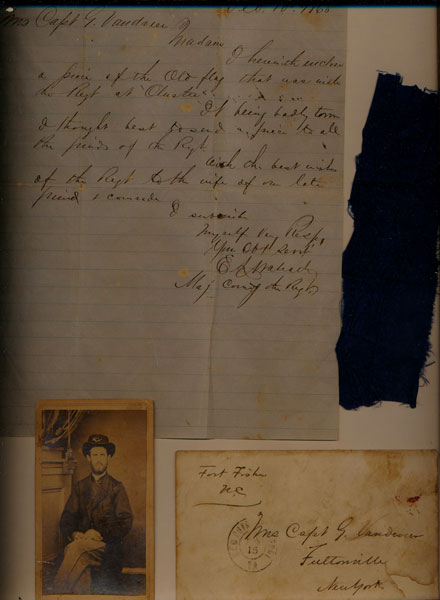 Mrs Capt G. Vandeveer
Madam
I herewith enclose
a piece of the Old flag that was with
the Regt at Olustee.
It being badly torn
I thought best to send a piece to all
the friends of the Regt
With the best wishes
of the Regt to the wife of our late
friend & comrade
I subscribe
myself very Resp,
Your Obt Servt
Maj. Comdg the Regt
Fort Fisher
N.C.
18
Mrs Capt G. Vandeveer
Fultonville
New York